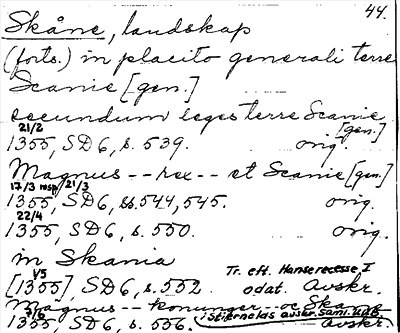 44.
Skåne, landskap
(forts.) in placito generali terre
Scanie [gen.]
secundum leges terre Scanie [gen.]
21/2
1355, SD6, s. 539. orig.
Magnus -- rex -- et Scanie [gen.]
17/3 resp. 21/3
1355, SD6, ss. 544, 545. orig.
22/4
1355, SD6, s. 550. orig.
in Skania
1/5 Tr. eft. Hanserecesse I
[1355], SD6, s. 552. odat. Avskr.
Magnus -- konunger -- oc Skane
7/6 Stiernelds avskr. saml. UUB
1355, SD6, s. 556. Avskr.